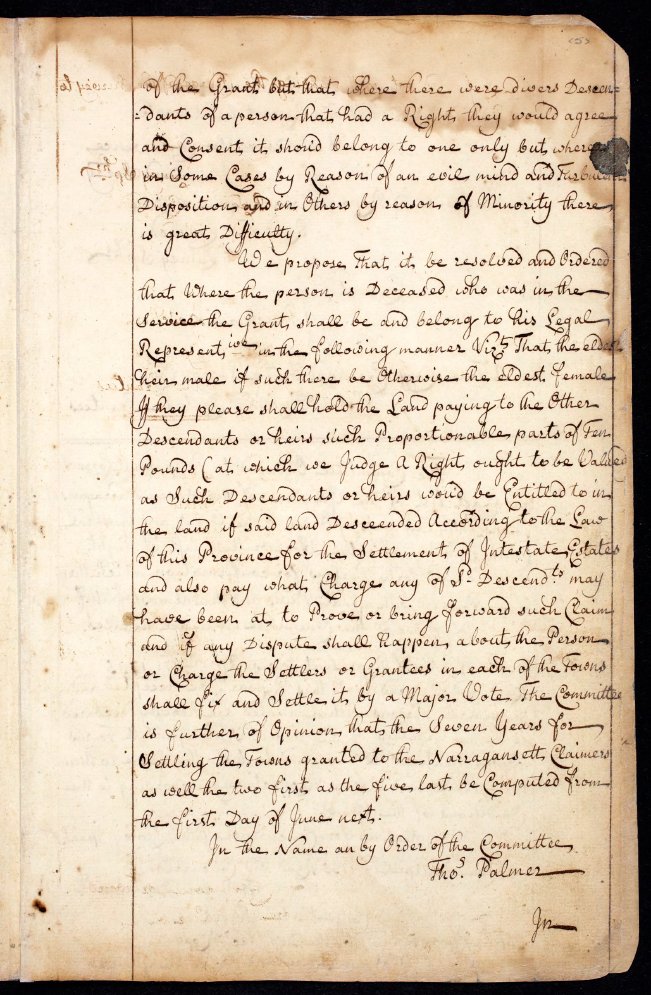 (5)
of the Grant but that where there were divers Descen=
=dants of a person that had a Right they would agree
and Consent it should belong to one only but where
in Some Cases by Reason of an evil mind and Turbulent
Disposition and in Others by reason of Minority there
is great Difficulty.
We propose That it be resolved and Ordered
that Where the person is Deceased who was in the
Service the Grant shall be and belong to his Legal
Represent.ive in the following manner Vizt. That the eldest
heir male if such there be Otherwise the eldest female
If they please shall hold the Land paying to the Other
Descendants or heirs such Proportionable parts of Ten
Pounds (at which we Judge A Right ought to be Valued
as Such Descendants or heirs wou'd be Entitled to in
the land if said land Desceended According to the Law
of this Province for the Settlement of Intestate Estates
and also pay what Charge any of Sd. Descend.ts may
have been at to Prove or bring forward such Claim
and if any Dispute shall Happen about the Person
or Charge the Settlers or Grantees in each of the Towns
shall fix and Settle it by a Major Vote The Committee
is further of Opinion that the Seven Years for
Settling the Towns granted to the Narragansett Claimers
as well the two first as the five last be Computed from
the first Day of June next.
In the Name an by Order of the Committee
Thos. Palmer
In